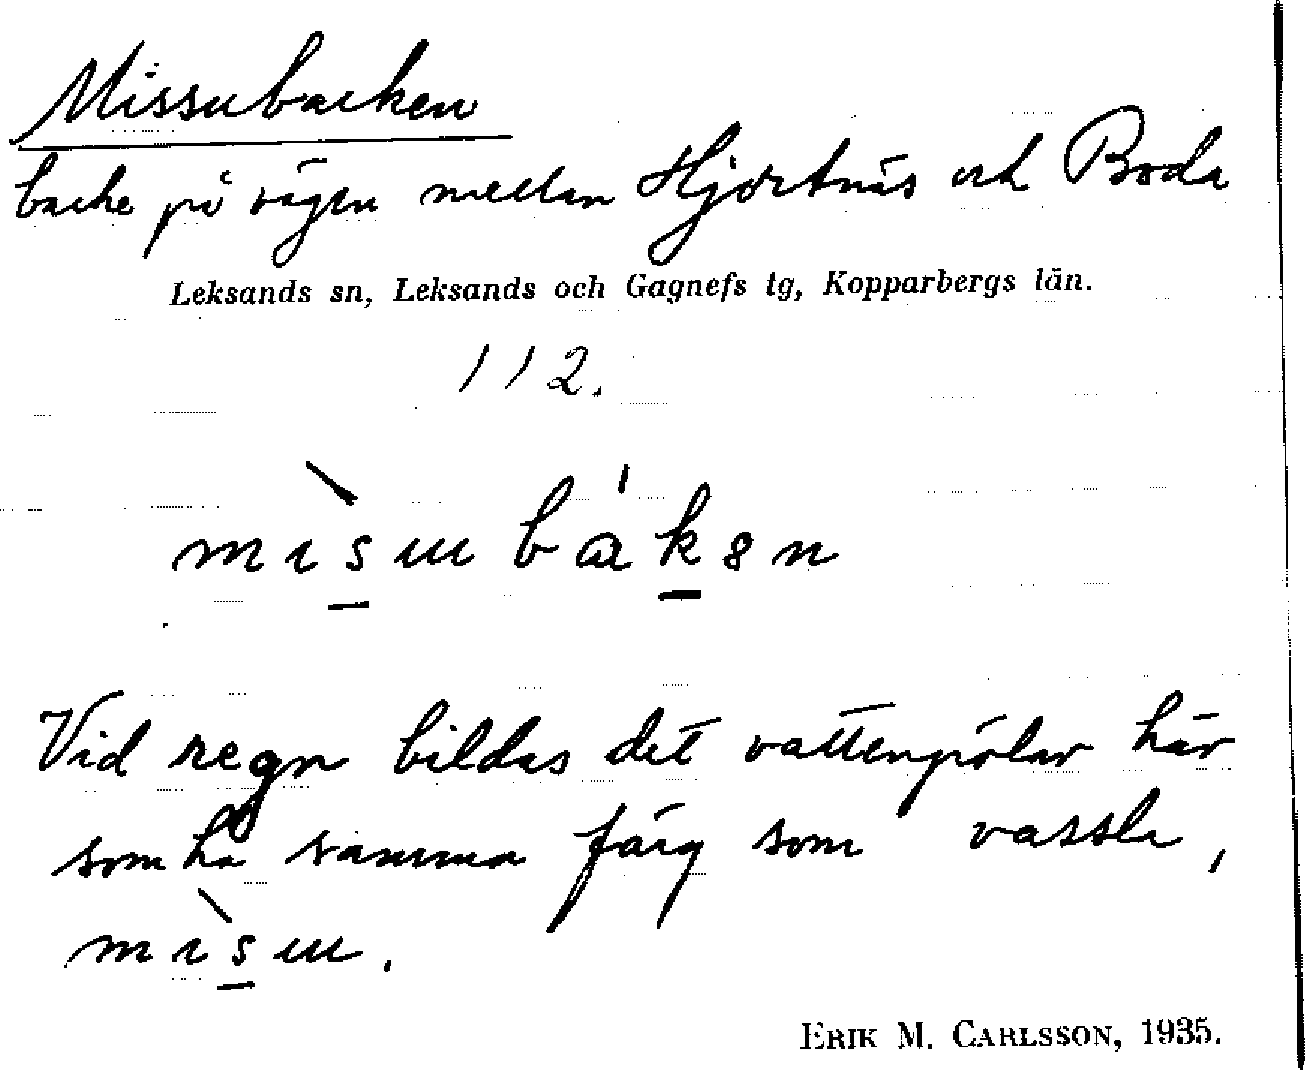 Missubacken
backe på vägen mellan Hjortnäs och Boda
Leksands sn, Leksands och Gagnefs tg, Kopparbergs län.
112.
mısɯbakən
Vid regn bildas det vattenpölar här
som ha samma färg som vassla,
mısɯ.
ERIK M. CARLSSON, 1935.